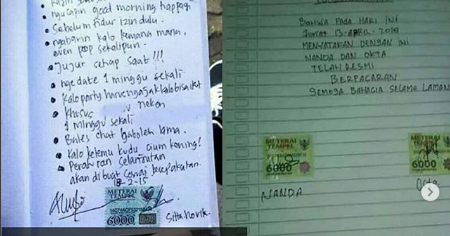 ngucapin good morning tiap pagi
Sebelum tidur izin dulu.
ngabarin kalo kemana mana,
even pop sekalipun.
Jujur setiap saat!!!
nge date 1 minggu sekali
Kalo party harus ngajak kalo bisa ikut
Khusus
1 minggu sekali
Bales chat gaboleh lama.
Kalo ketemu kudu cium kening!
Peraturan selanjutnya
akan dibuat sesuai kesepakatan.
18-2-15
METERAI
TEMPEL
6000
Sitta Novik
BAHWA PADA HARI INI
JUMAT 13-APRIL-2018
MENYATAKAN DENGAN INI
NANDA DAN OKTA
TELAH RESMI
BERPACARAN
SEMOGA BAHAGIA SELAMA LAMAN
METERAI
TEMPEL
6000
METERAI
TEMPEL
6000
NANDA
Octa